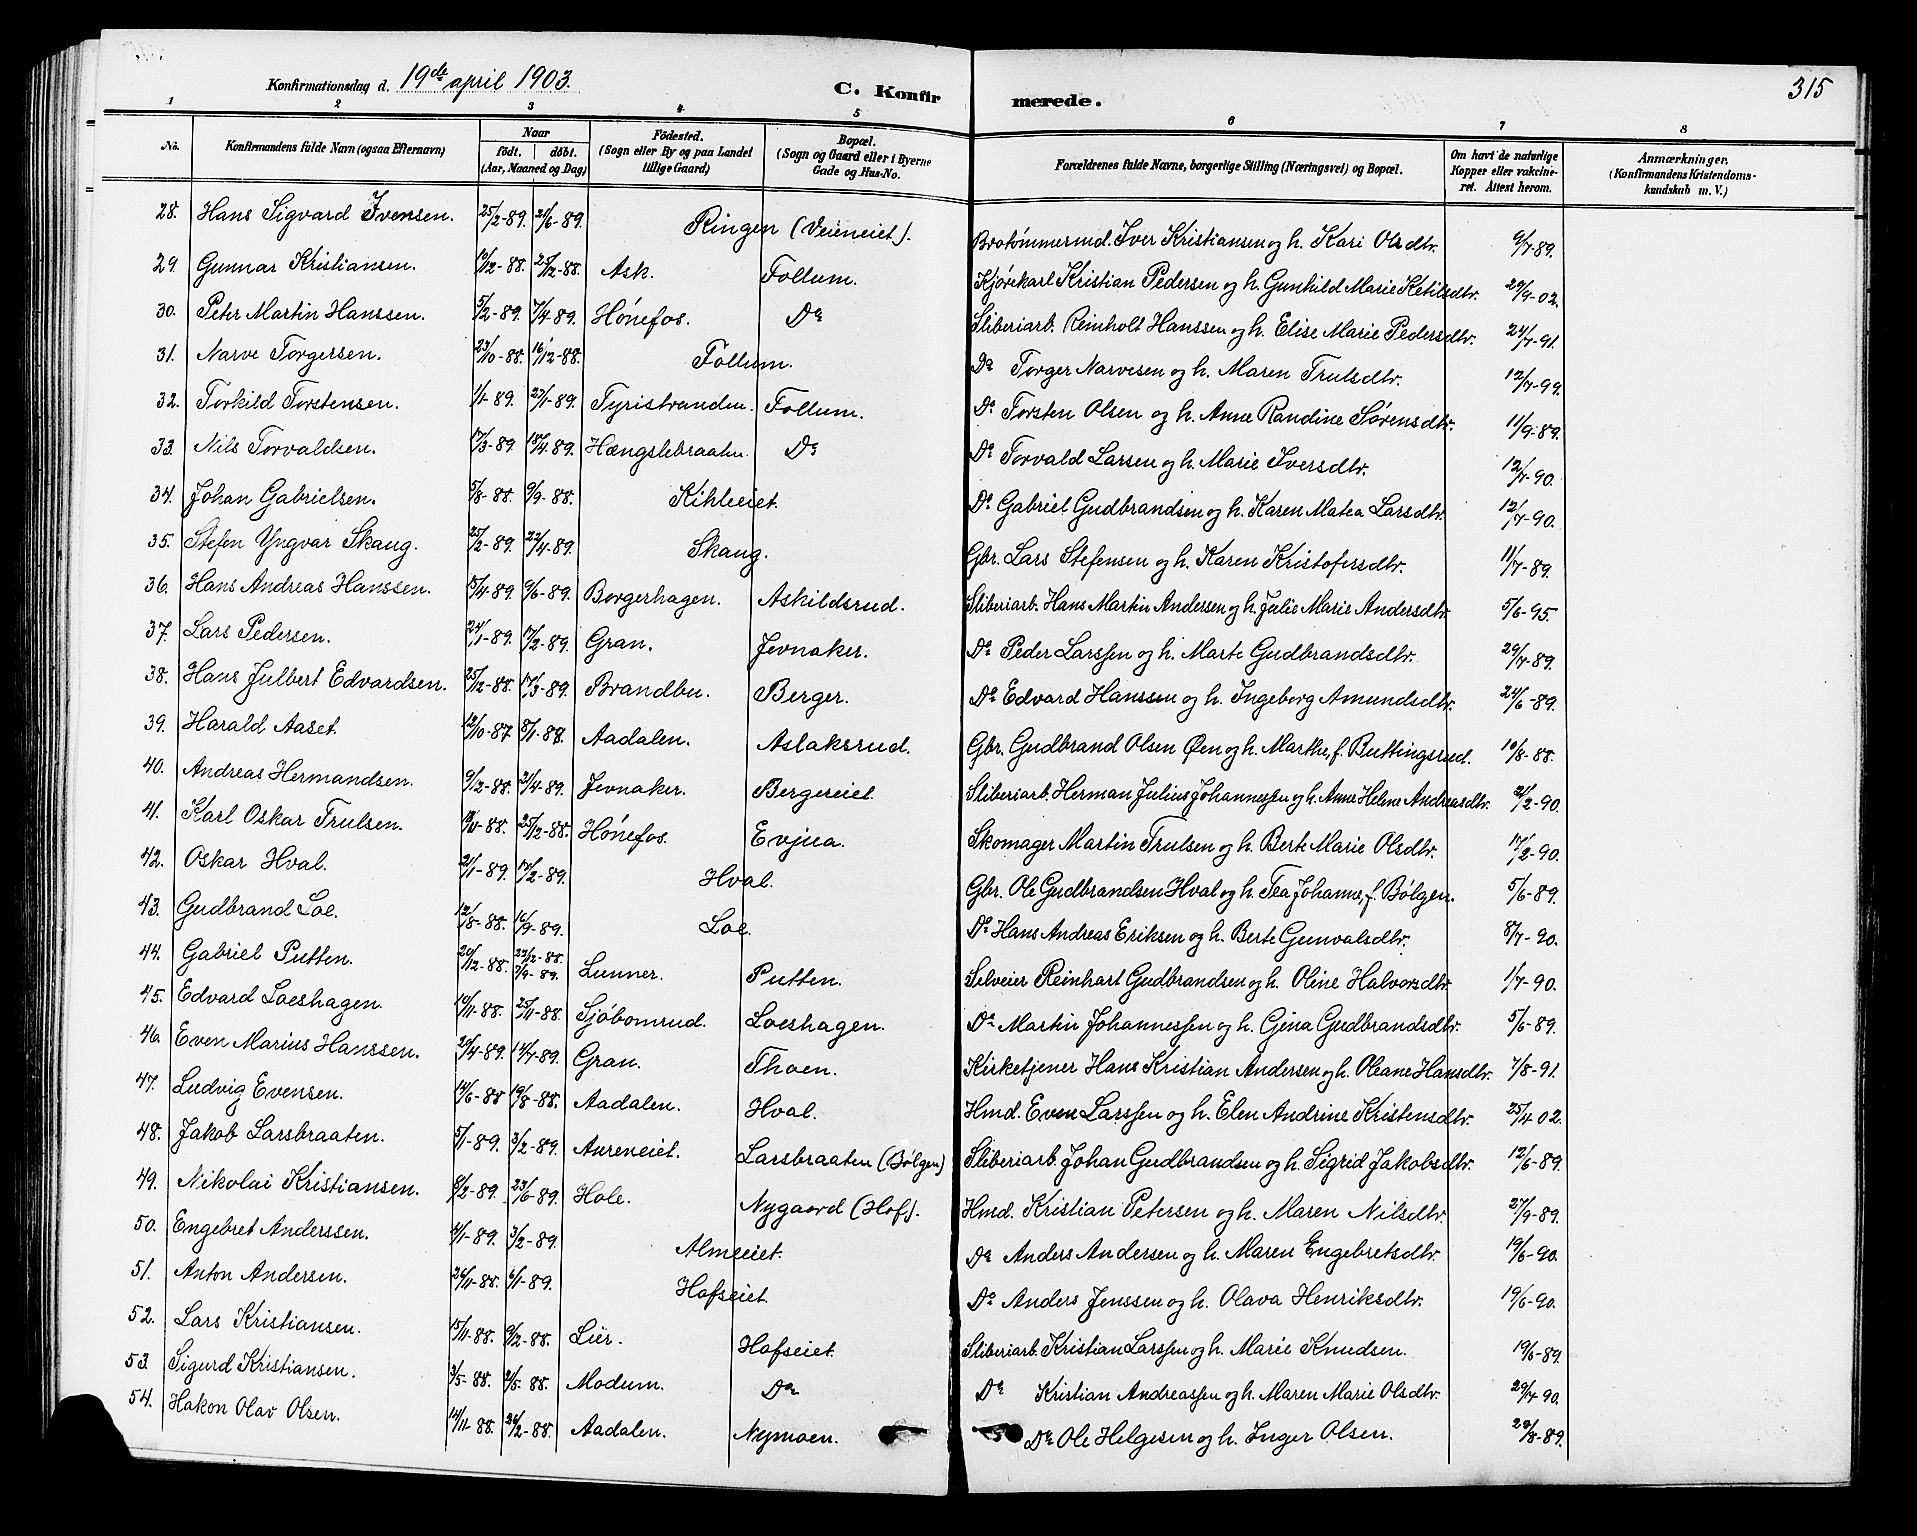 Konfirmationsdag d. 19de april 1903.
C. Konfirmerede.
315
1 2 3 4 5 6 7 8
No. Konfirmandens fulde Navn (ogsaa Efternavn) Naar födt. döbt. (Aar, Maaned og Dag) Födested. (Sogn eller By og paa Landet tillige Gaard) Bopæl. (Sogn og Gaard eller i Byerne Gade og Hus-No. Forældrenes fulde Navne, borgerlige Stilling (Næringsvei) og Bopæl. Om havt de naturlige Kopper eller vakcineret. Attest herom. Anmærkninger. (Konfirmandens Kristendomskundskab m. V.)
28. Hans Sigvard Ivensen. 25/2-89. 2/6-89. Ringen (Veieneiet). Brotømmermd. Iver Kristiansen og h. Kari Olsdtr. 9/7-89.
29. Gunnar Kristiansen. 10/12-88. 25/12-88. Ask. Follum. Kjørekarl Kristian Pedersen og h. Gunhild Marie Ketilsdtr. 20/9-02.
30. Peter Martin Hanssen. 5/2-89. 7/4-89. Hønefos. Do Sliberiarb. Reinholt Hanssen og h. Elise Marie Pedersdtr. 24/7-91.
31. Narve Torgersen. 23/10-88. 16/12-88. Follum. Do Torger Narvesen og h. Maren Trulsdtr. 12/7-99.
32. Torkild Torstensen. 1/1-89. 27/1-89. Tyristranden. Follum. Do Torsten Olsen og h. Anne Randine Sørensdtr. 11/9-89.
33. Nils Torvaldsen. 17/3-89. 18/4-89. Hængslebraaten. Do Do Torvald Larsen og h. Marie Iversdtr. 12/7-90.
34. Johan Gabrielsen. 5/8-88. 9/9-88. Kihleeiet. Do Gabriel Gudbrandsen og h. Karen Matea Larsdtr. 12/7-90.
35. Stefen Yngvar Skaug. 25/2-89. 22/4-89. Skaug. Gbr. Lars Stefensen og h. Karen Kristofersdtr. 11/7-89.
36. Hans Andreas Hanssen. 5/4-89. 9/6-89. Borgerhagen. Askildsrud. Sliberiarb. Hans Martin Andersen og h. Julie Marie Andersdtr. 5/6-95.
37. Lars Pedersen. 24/1-89. 17/2-89. Gran. Jevnaker. Do Peder Larssen og h. Marte Gudbrandsdtr. 29/7-89.
38. Hans Julbert Edvardsen. 25/12-88. 17/3-89. Brandbu. Berger. Do Edvard Hanssen og h. Ingeborg Amundsdtr. 24/6-89.
39. Harald Aaset. 12/10-87 8/1-88. Aadalen. Aslaksrud. Gbr. Gudbrand Olsen Øen og h. Marthe, f. Buttingsrud. 10/8-88.
40. Andreas Hermandsen. 9/12-88. 21/4-89. Jevnaker. Bergereiet. Sliberiarb. Herman Julius Johannessen og h. Anne Helene Andreasdtr. 2/2-90.
41. Karl Oskar Trulsen. -88. 25/12-88. Hønefos. Evjua. Skomager Martin Trulsen og h. Berte Marie Olsdtr. 17/2-90.
42. Oskar Hval. 21/1-89. 17/2-89. Hval. Gbr. Ole Gudbrandsen Hval og h. Tea Johanne, f. Bølgen. 5/6-89.
43. Gudbrand Loe. 12/8-88. 16/9-89. Loe. Do Hans Andreas Eriksen og h. Berte Gunvalsdtr. 8/7-90.
44. Gabriel Putten. 20/12-88. 23/12-88. 7/9-89. Lunner. Putten. Selveier Reinhart Gudbrandsen og h. Oline Halvorsdtr. 1/7-90.
45. Edvard Loeshagen. 10/11-88. 25/11-88. Sjøbomrud. Loeshagen. Do Martin Johannessen og h. Gina Gudbrandsdtr. 5/6-89.
46. Even Marius Hanssen. 20/4-89. 14/7-89. Gran. Thoen. Kirketjener Hans Kristian Andersen og h. Oleane Hansdtr. 7/8-91.
47. Ludvig Evensen. 14/6-88 19/8-88. Aadalen. Hval. Hmd. Even Larssen og h. Elen Andrine Kristensdtr. 25/4 02.
48. Jakob Larsbraaten. 5/1-89. 3/2-89. Aureneiet. Larsbraaten (Bølgen) Sliberiarb. Johan Gudbrandsen og h. Sigrid Jakobsdtr. 12/6-89.
49. Nikolai Kristiansen. 8/2-89. 23/6-89. Hole. Nygaard (Hof). Hmd. Kristian Petersen og h. Maren Nilsdtr. 27/9-89.
50. Engebret Anderssen. 4/1-89. 3/2-89. Almeeiet. Do Anders Andersen og h. Maren Engebretsdtr. 19/6-90.
51. Anton Andersen. 26/11-88. 6/1-89. Hofseiet. Do Anders Jenssen og h. Olava Henriksdtr. 19/6-90.
52. Lars Kristiansen. 15/11-88. 9/12-88. Lier. Hofseiet. Sliberiarb. Kristian Larssen og h. Marie Knudsen. 19/6-89.
53. Sigurd Kristiansen. 3/5-88. 2/5-88. Modum. Do Do Kristian Andreassen og h. Maren Marie Olsdtr. 29/7-90.
54. Hakon Olav Olsen. 14/11-88. 26/12-88. Aadalen. Nymoen. Do Ole Helgesen og h. Inger Olsen. 28/8-89.